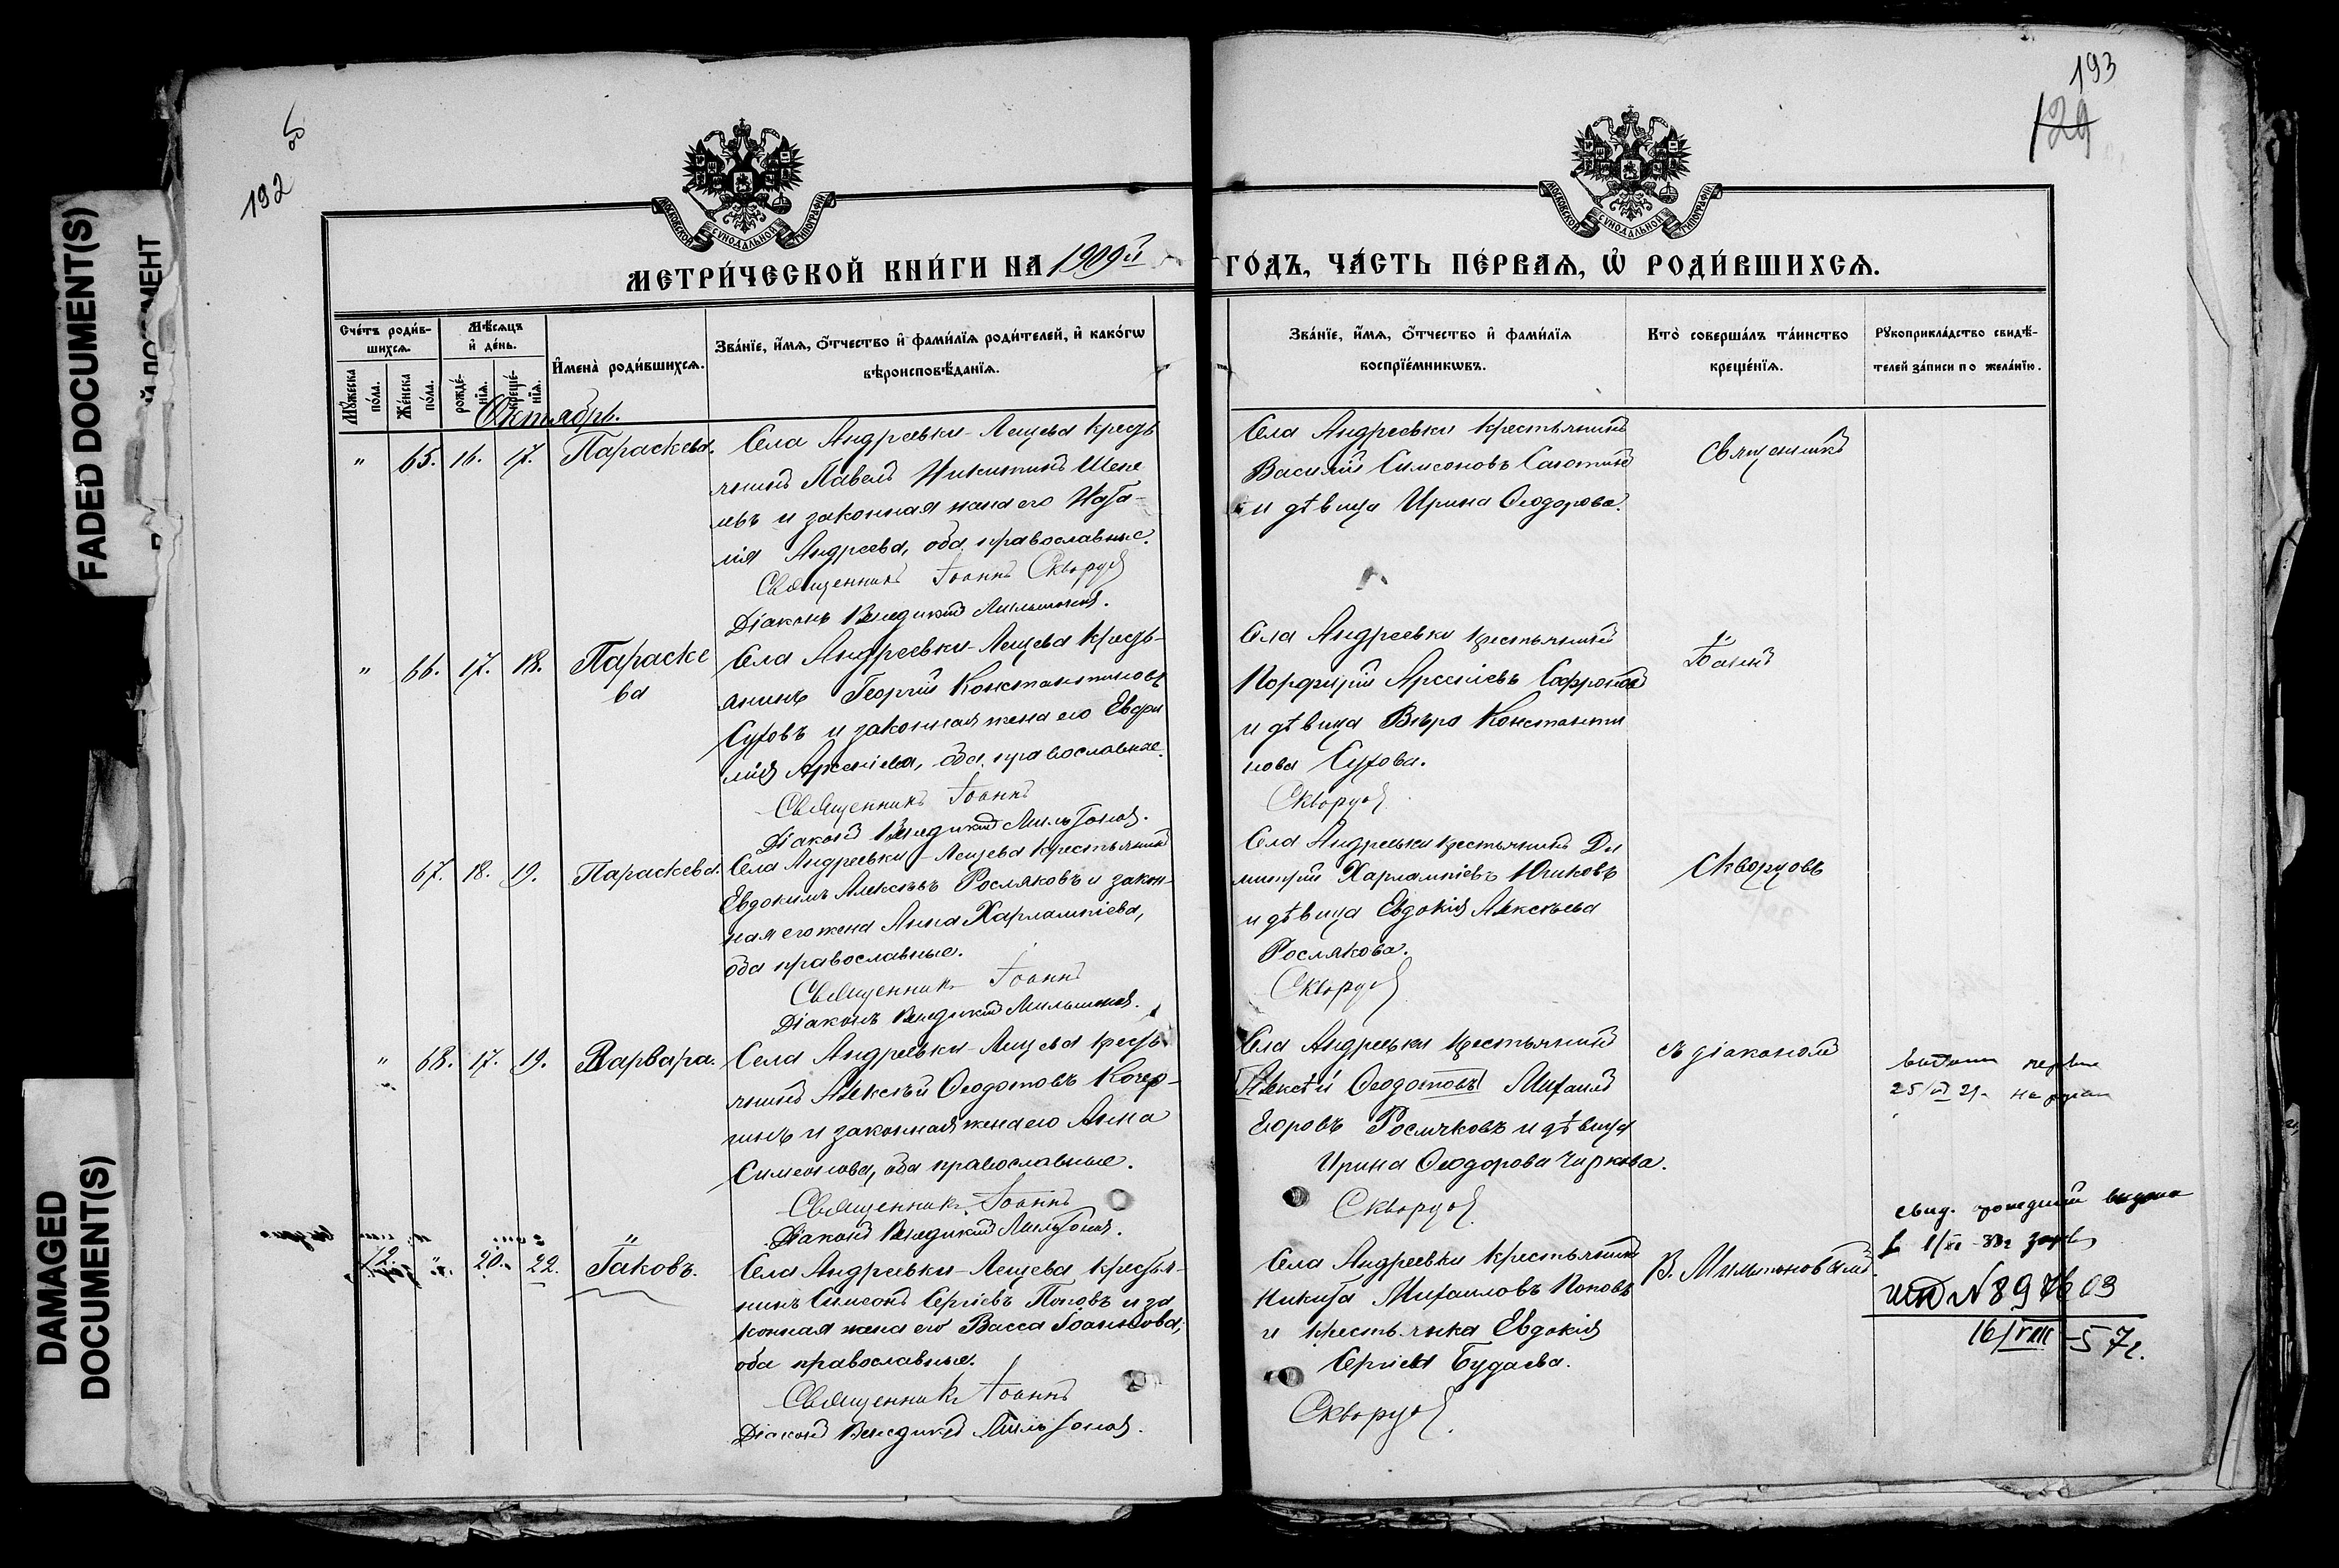 FADED DOCUMENT(S)
DAMAGED
DOCUMENT(S)
192
193
129
МОСКОВСКОЙ СѴНОДАЛЬНОЙ ТИПОГРАФІИ
МОСКОВСКОЙ СѴНОДАЛЬНОЙ ТИПОГРАФІИ
МЕТРИ́ЧЕСКОЙ КНИ́ГИ НА 1909й ГО́ДЪ, ЧА́СТЬ ПЕ́РВАѦ, Ѡ҆ РОДИ́ВШИХСѦ.
Сче́тъ роди́в-
шихсѧ.
Мꙋ́жеска по́ла.
Же́нска по́ла.
Мѣ́сѧцъ
и҆ де́нь.
рожде́-
нїѧ.
креще́-
нїѧ.
И҆мена̀ роди́вшихсѧ.
Зва́нїе, и҆́мѧ, ѻ҆́тчество и҆ фами́лїѧ роди́телей, и҆ како́гѡ
вѣроисповѣ́данїѧ.
Зва́нїе, и҆́мѧ, ѻ҆́тчество и҆ фами́лїѧ
воспрїе́мникѡвъ.
Кто̀ соверша́лъ та́инство
креще́нїѧ.
Рꙋкоприкла́дство свидѣ́-
телей за́писи по жела́нїю.
Октябрь.
" 65. 16. 17. Параскева.
Села Андреевки-Лещева кресть
янинъ Павелъ Никитинъ Шепе
левъ и законная жена его Ната-
лія Андреева, оба православные.
Священникъ Іоаннъ Скворцов
Діаконъ Венедиктъ Мильтонов.
Села Андреевки крестьянинъ
Василій Симеоновъ
и дѣвица Ирина Ѳеодорова.
Священникъ
" 66. 17. 18. Параске
ва
Села Андреевки-Лещева кресть-
янинъ Георгій Константиновъ
Сутовъ и законная жена его Евфи
мія Арсеніева, оба православные.
Священникъ Іоаннъ
Діаконъ Венедиктъ Мильтонов.
Села Андреевки крестьянинъ
Порфирій Арсеніевъ Софроновъ
и дѣвица Вѣра Константи
нова Сутова.
Скворцов
Іоаннъ
67. 18. 19. Параскева.
Села Андреевки-Лещева крестьянинъ
Евдокимъ Алексѣевъ Росляковъ и закон-
ная его жена Анна Харлампіева,
оба православные.
Священникъ Іоаннъ
Діаконъ Венедиктъ Мильтонов.
Села Андреевки крестьянинъ Ди
митрій Харлампіевъ Юшковъ
и дѣвица Евдокія Алексѣева
Рослякова.
Скворцов
Скворцовъ
" 68. 17. 19. Варвара.
Села Андреевки-Лещева кресть
янинъ Алексѣй Ѳеодотовъ Кочер-
гинъ и законная жена его Анна
Симеонова, оба православные.
Священникъ Іоаннъ
Діаконъ Венедиктъ Мильтонов.
Села Андреевки крестьянинъ
Алексѣй Ѳеодотовъ Михаилъ
Егоровъ Росляковъ и дѣвица
Ирина Ѳеодорова Чиркова.
Скворцов
съ діакономъ
72 " 20. 22. Іаковъ.
Села Андреевки-Лещева крестья-
нинъ Симеонъ Сергіевъ Поповъ и за
конная жена его Васса Іоаннова,
оба православные.
Священникъ Іоаннъ
Діаконъ Венедиктъ Мильтонов.
Села Андреевки крестьянинъ
Никита Михаиловъ Поповъ
и крестьянка Евдокія
Сергіева Будаева.
Скворцов
В. Мильтоновымъ
свид. выдано
№ 897603
16/VIII-57г.